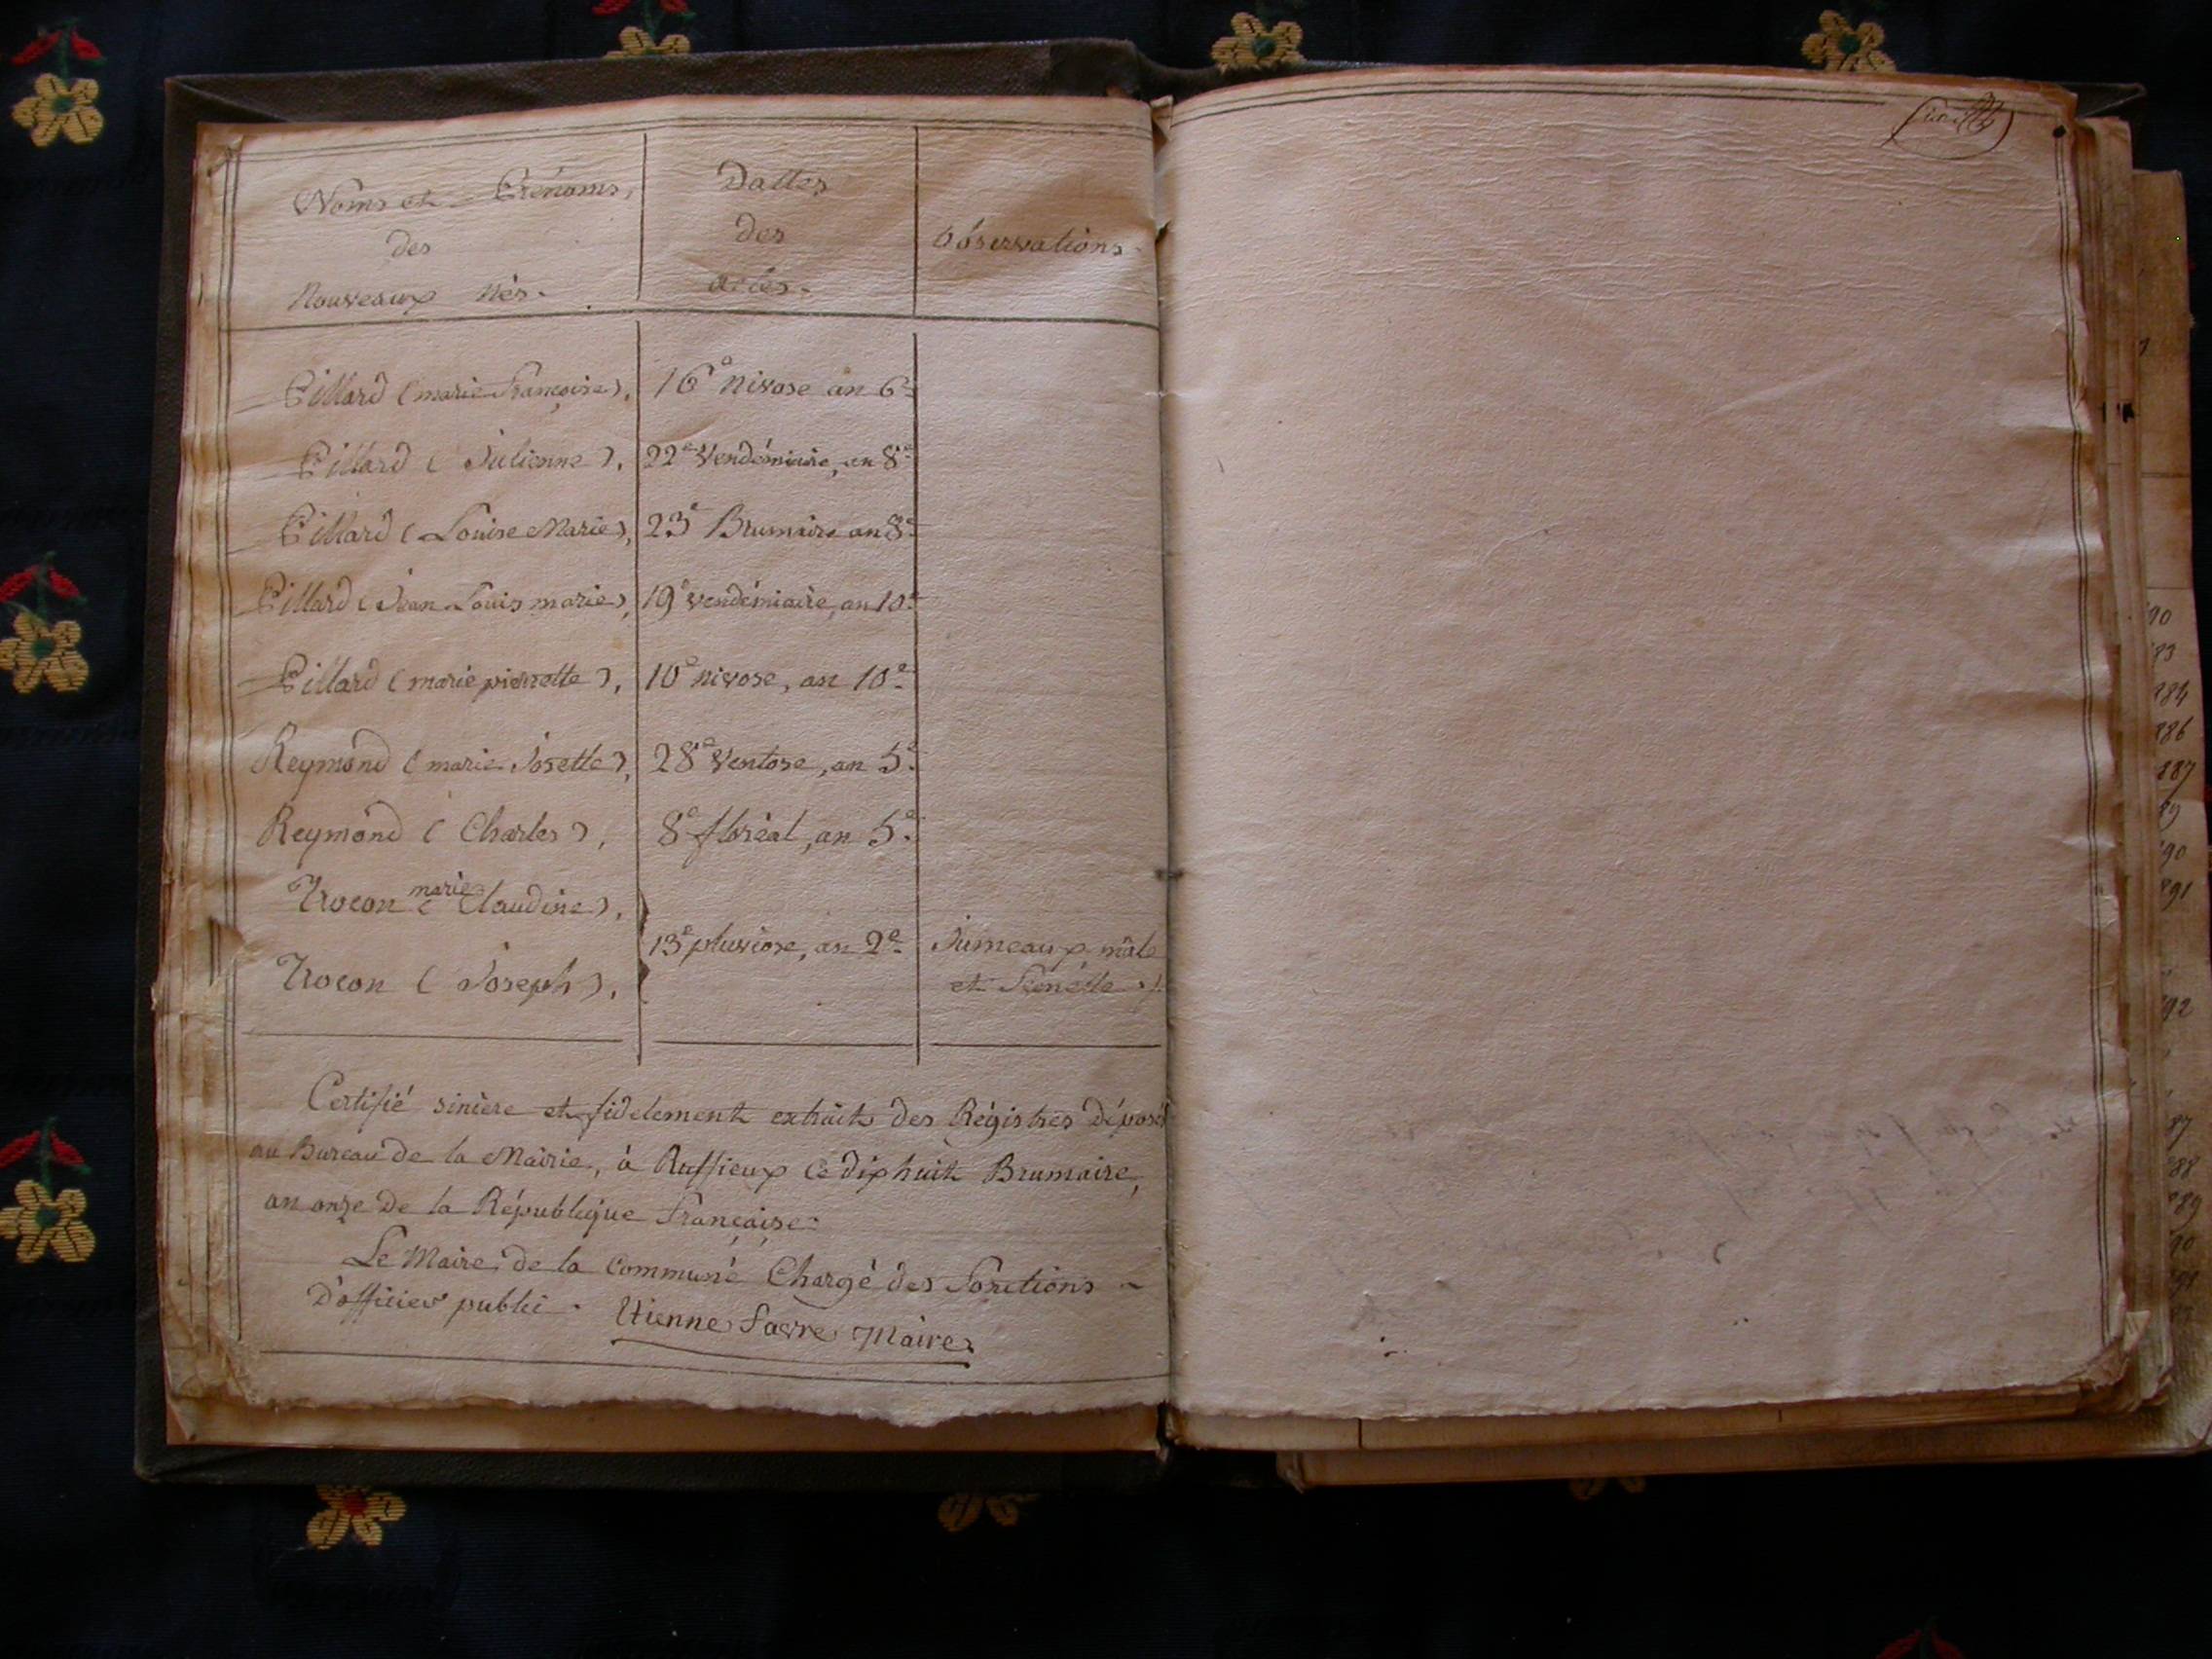 Noms et Prénoms, Dattes
des des Observations
Nouveaux Nés. actes.
Pillard (marie françoise), 16e nivose an 6e
Pillard (Julienne), 22e Vendémiaire, an 8e
Pillard (Louise Marie), 23e Brumaire an 8e
Pillard (Jean Louis marie), 19e vendémiaire, an 10e
Pillard (marie pierrette), 10e nivose, an 10e
Reymond (marie Josette), 28e Ventose, an 5e
Reymond (Charles), 8e floréal, an 5e
marie
Trocon (Claudine),
13e pluviose, an 2e Jumeaux, mâle
Trocon (Joseph), et femelle
Certifié sincère et fidelement extraits des Régistres déposés
au Bureau de la Mairie, à Ruffieux ce dix huit Brumaire,
an onze de la République française.
Le Maire de la Commune Chargé des fonctions
D'officier public. Etienne favre Maire
90
93
884
886
887
89
90
891
92
87
88
89
90